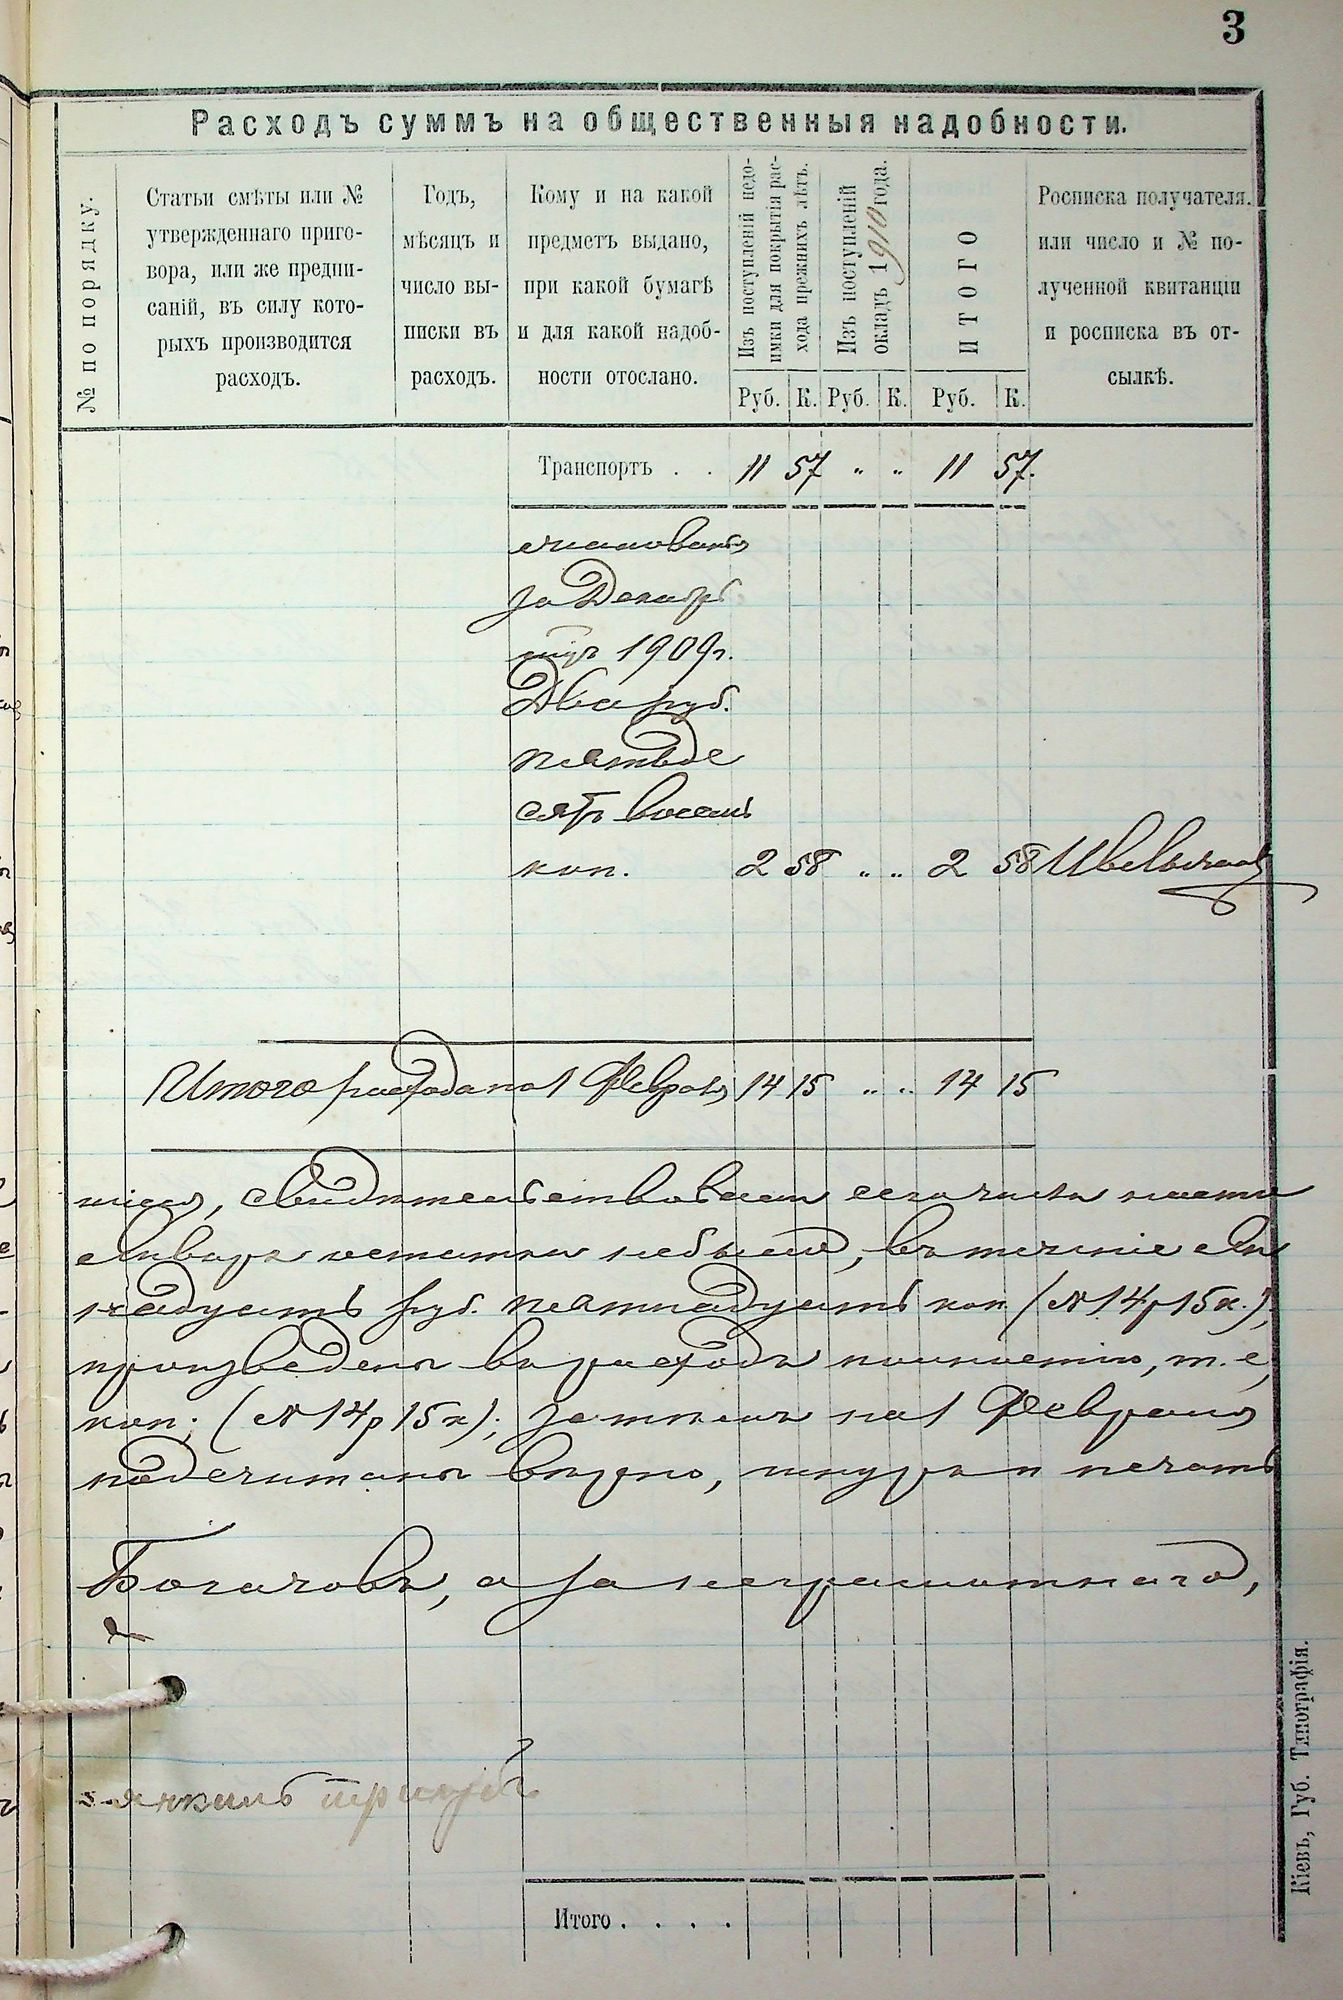 3
Расходъ суммъ на общественныя надобности.
№ по порядку.
Статьи смѣты или №
утвержденнаго приго-
вора, или же предпи-
саній, въ силу кото-
рыхъ производится
расходъ.
Годъ,
мѣсяцъ и
число вы-
писки въ
расходъ.
Кому и на какой
предметъ выдано,
при какой бумагѣ
и для какой надоб-
ности отослано.
Изъ поступленій недо-
имки для покрытія рас-
хода прежнихъ лѣтъ.
Изъ поступленій
окладъ 1910 года.
ИТОГО
Росписка получателя.
или число и № по-
лученной квитанціи
и росписка въ от-
сылкѣ.
Руб. К. Руб. К. Руб. К.
Транспортъ . . 11 57 " " 11 57.
за Декабр
1909г.
Два руб.
пятьде
сятъ восемь
коп. 2 58 " " 2 58
Итого расхода на 1 Февраля 14 15 " " 14 15
свидѣтельствовали сего числа
Января остатка небыло, въ теченіе
надцать руб. пятнадцать коп (14р 15к.);
произведено въ расходъ полностію, т. е,
коп; (14р 15к); затѣмъ на 1 Февраля
подсчитаны вѣрно, шнуръ и печать
Богачовъ, а за неграмотнаго,
Итого . . . .
Кіевъ, Губ. Типографія.